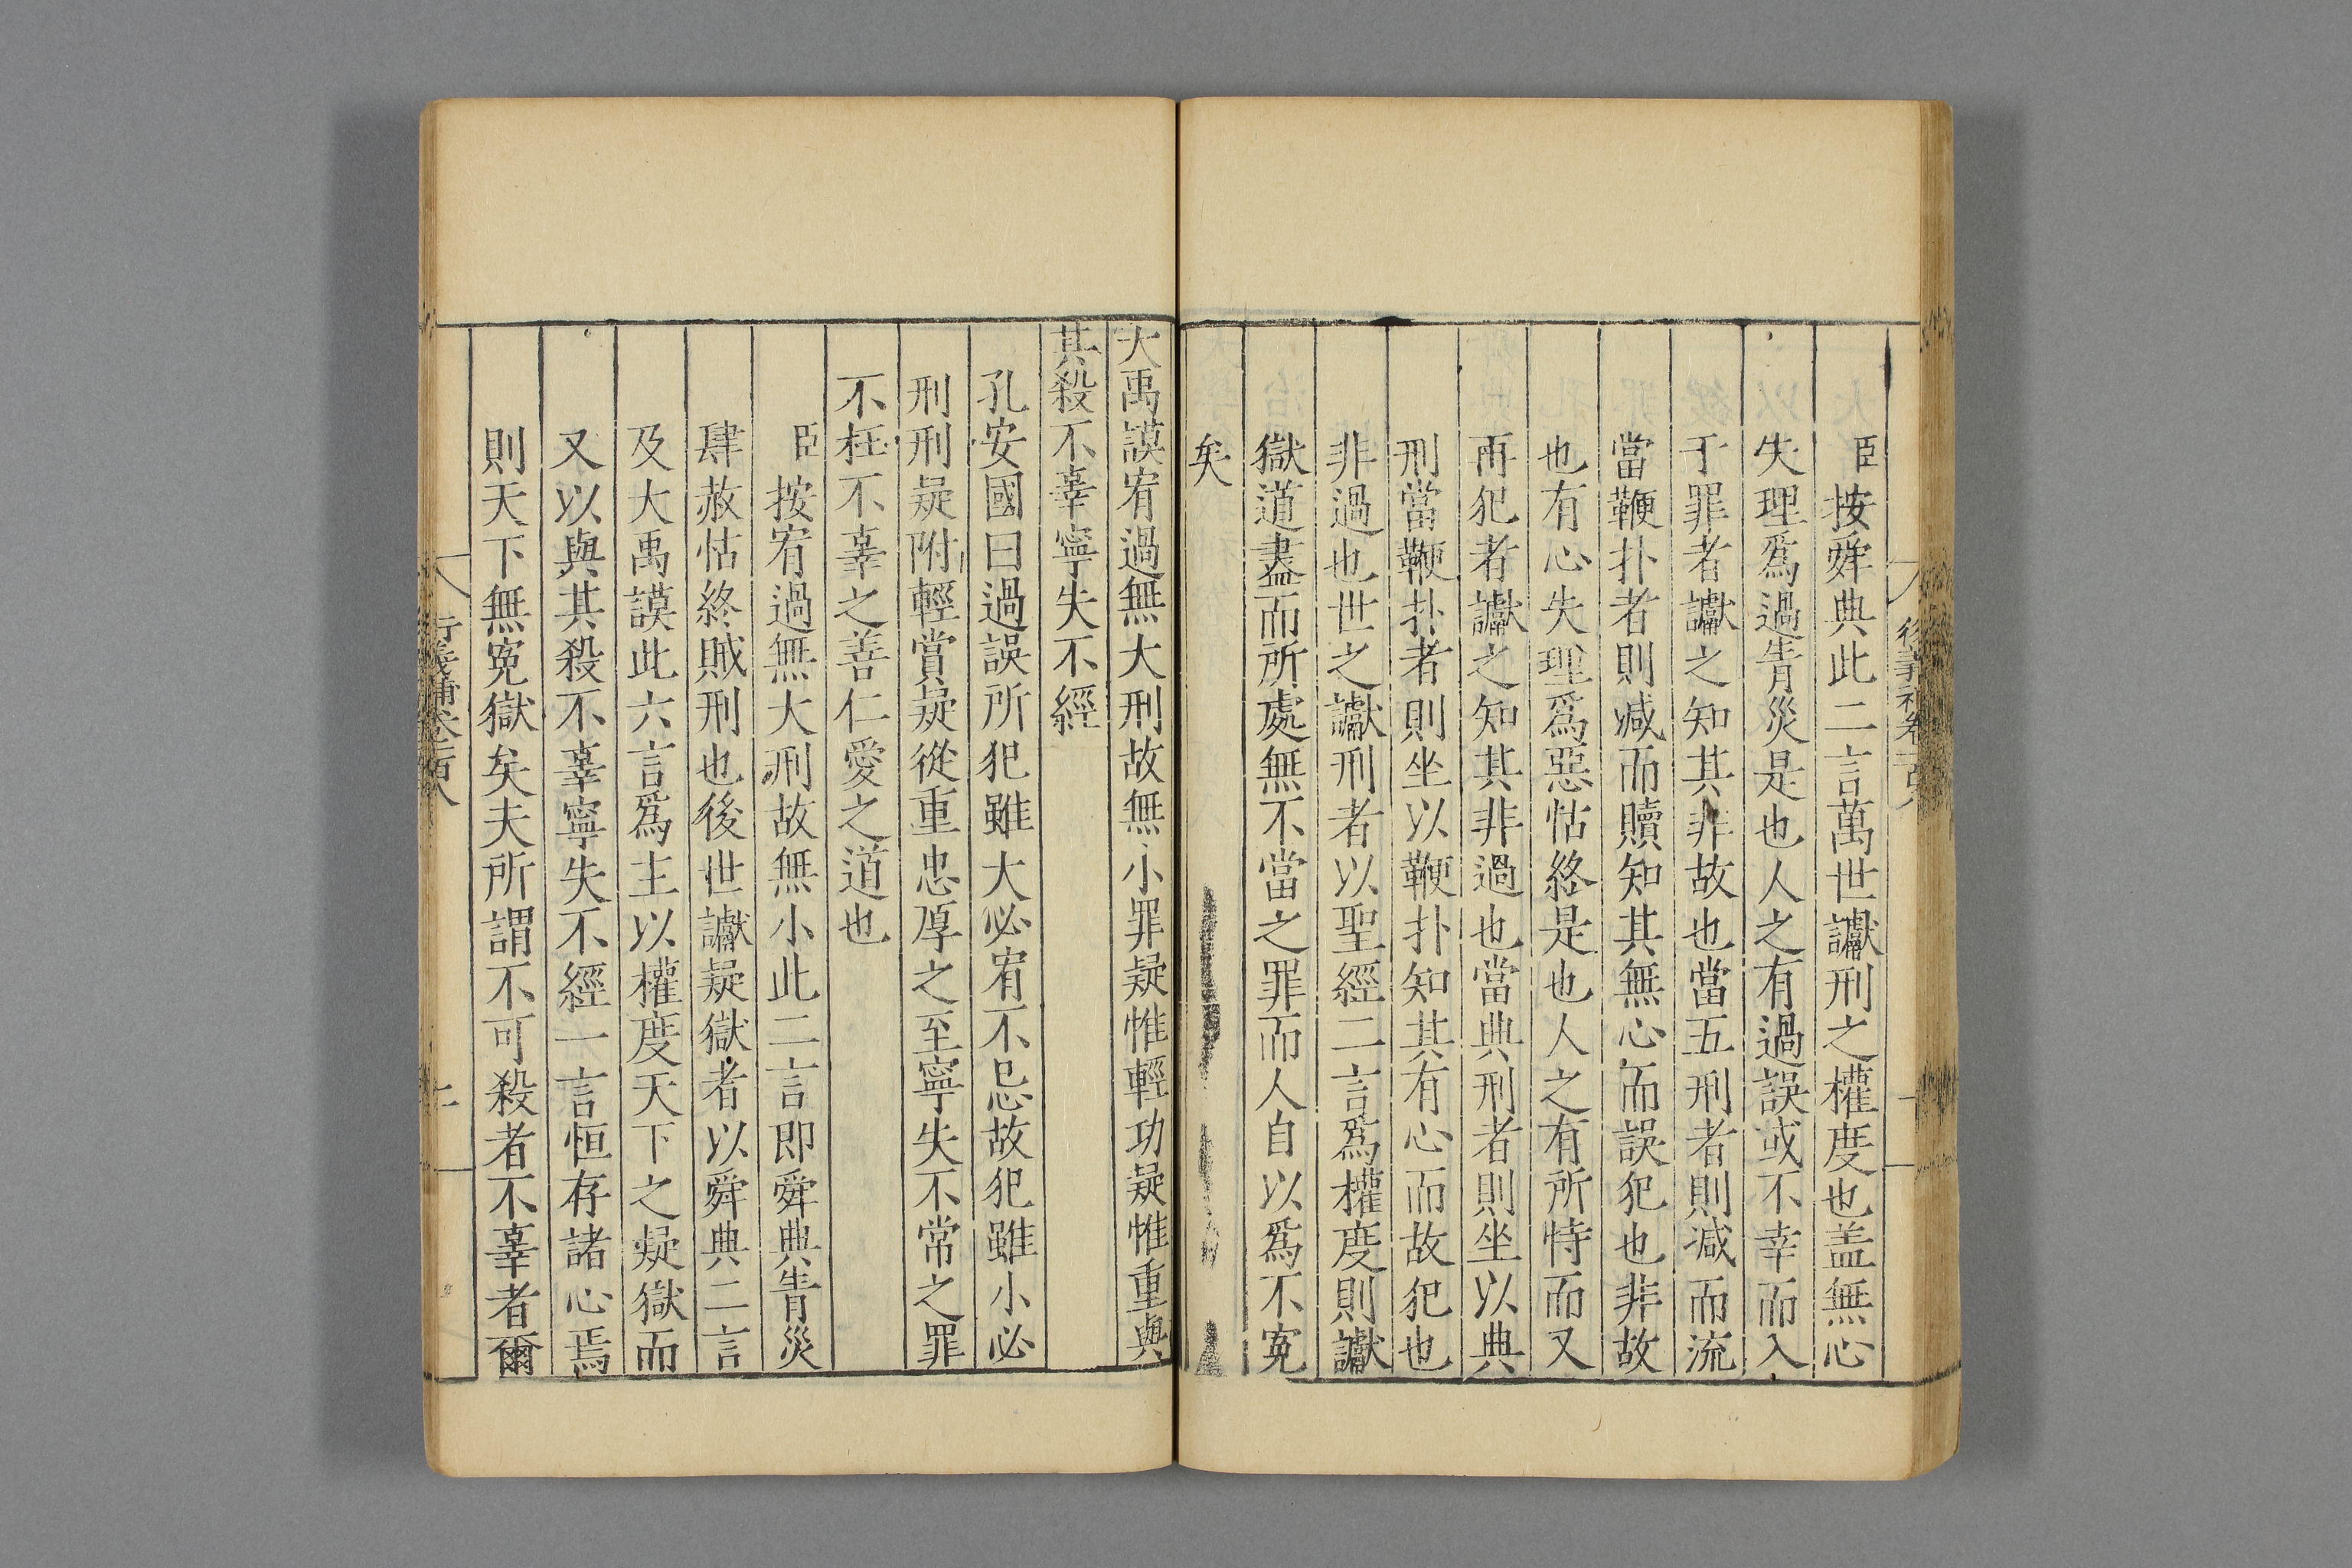 臣按舜典此二言萬世讞刑之權度也盖無心
失理爲過眚災是也人之有過誤或不幸而入
于罪者讞之知其非故也當五刑者則減而流
當鞭扑者則减而贖知其無心而誤犯也非故
也有心失理爲惡怙終是也人之有所恃而又
再犯者讞之知其非過也當典刑者則坐以典
刑當鞭扑者則坐以鞭扑知其有心而故犯也
非過也世之讞刑者以聖經二言爲權度則讞
獄道盡而所處無不當之罪而人自以爲不寃
矣
大禹謨宥過無大刑故無小罪疑惟輕功疑惟重與
其殺不辜寧失不經
孔安國曰過誤所犯雖大必宥不忌故犯雖小必
刑刑疑附輕賞疑從重忠厚之至寧失不常之罪
不枉不辜之善仁愛之道也
臣按宥過無大刑故無小此二言即舜典眚災
肆赦怙終賊刑也後世讞疑獄者以舜典二言
及大禹謨此六言爲主以權度天下之疑獄而
又以與其殺不辜寧失不經一言恒存諸心焉
則天下無寃獄矣夫所謂不可殺者不辜者爾